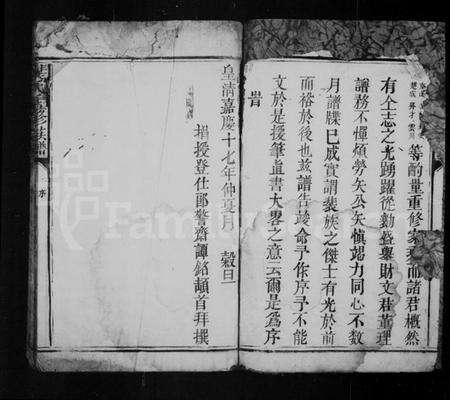 籌酌量重修家乘而諸君概然
有仝志之光踴躍從勷盛舉財文君董理
譜務不憚煩勞矢公矢慎竭力同心不數
月譜牒已成實謂裴族之傑士有光於前
而裕於後也兹譜告竣命予作序予不能
文於是援筆直書大畧之意云爾是為序
旹
皇清嘉慶十七年仲夏月 穀旦
授登仕郎警齋譚銘頓首拜撰
序